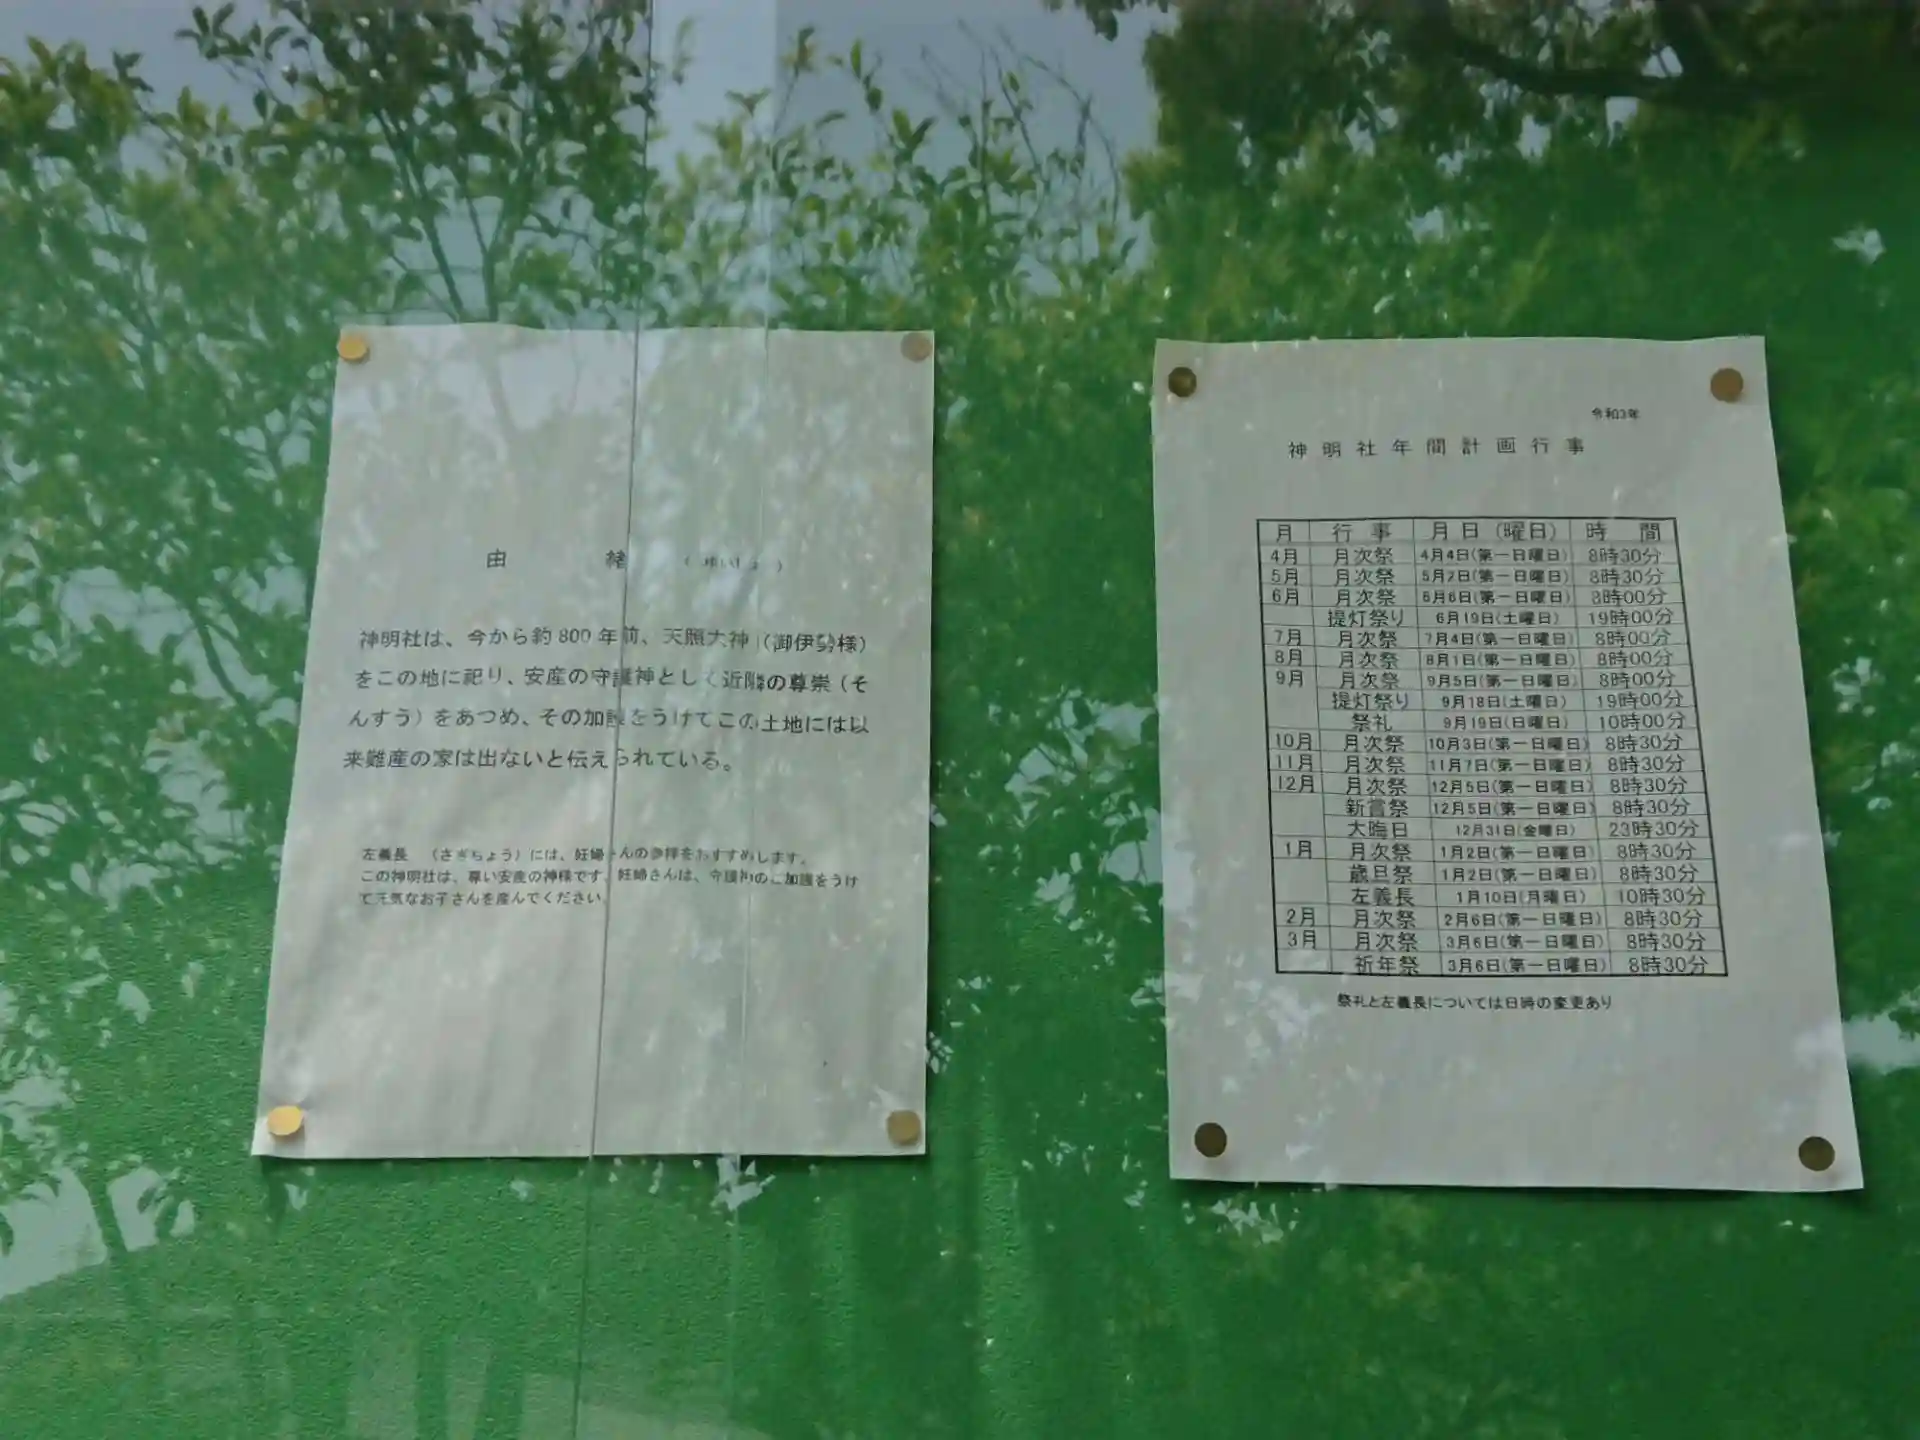 由　緒　（ゆいしょ）
神明社は、今から約800年前、天照大神（御伊勢様）
をこの地に祀り、安産の守護神として近隣の尊崇（そ
んすう）をあつめ、その加護をうけてこの土地には以
来難産の家は出ないと伝えられている。
左義長　（さぎちょう）には、妊婦さんの参拝をおすすめします。
この神明社は、尊い安産の神様です。妊婦さんは、守護神のご加護をうけ
て元気なお子さんを産んでください。
令和3年
神明社年間計画行事
月 行事 月日（曜日） 時間
4月 月次祭 4月4日(第一日曜日) 8時30分
5月 月次祭 5月2日(第一日曜日) 8時30分
6月 月次祭 6月6日(第一日曜日) 8時00分
提灯祭り 6月19日(土曜日) 19時00分
7月 月次祭 7月4日(第一日曜日) 8時00分
8月 月次祭 8月1日(第一日曜日) 8時00分
9月 月次祭 9月5日(第一日曜日) 8時00分
提灯祭り 9月18日(土曜日) 19時00分
祭礼 9月19日(日曜日) 10時00分
10月 月次祭 10月3日(第一日曜日) 8時30分
11月 月次祭 11月7日(第一日曜日) 8時30分
12月 月次祭 12月5日(第一日曜日) 8時30分
新嘗祭 12月5日(第一日曜日) 8時30分
大晦日 12月31日(金曜日) 23時30分
1月 月次祭 1月2日(第一日曜日) 8時30分
歳旦祭 1月2日(第一日曜日) 8時30分
左義長 1月10日(月曜日) 10時30分
2月 月次祭 2月6日(第一日曜日) 8時30分
3月 月次祭 3月6日(第一日曜日) 8時30分
祈年祭 3月6日(第一日曜日) 8時30分
祭礼と左義長については日時の変更あり